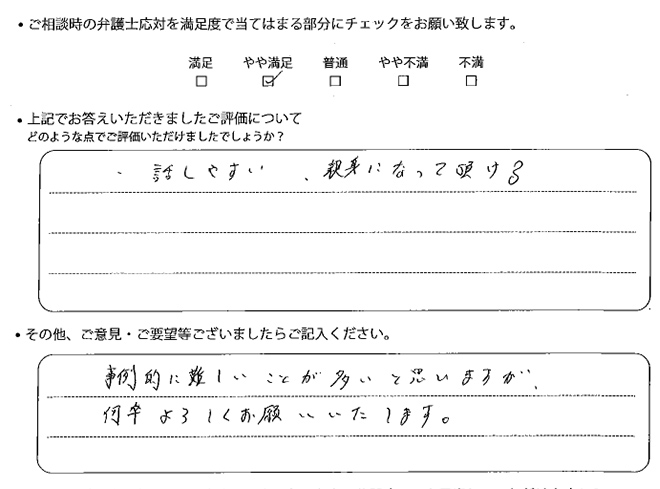 ・ご相談時の弁護士応対を満足度で当てはまる部分にチェックをお願い致します。
満足 やや満足 普通 やや不満 不満
□ ☑ □ □ □
・上記でお答えいただきましたご評価について
どのような点でご評価いただけましたでしょうか？
・話しやすい 、親身になって頂ける
・その他、ご意見・ご要望等ございましたらご記入ください。
事例的に難しいことが多いと思いますが、
何卒よろしくお願いいたします。